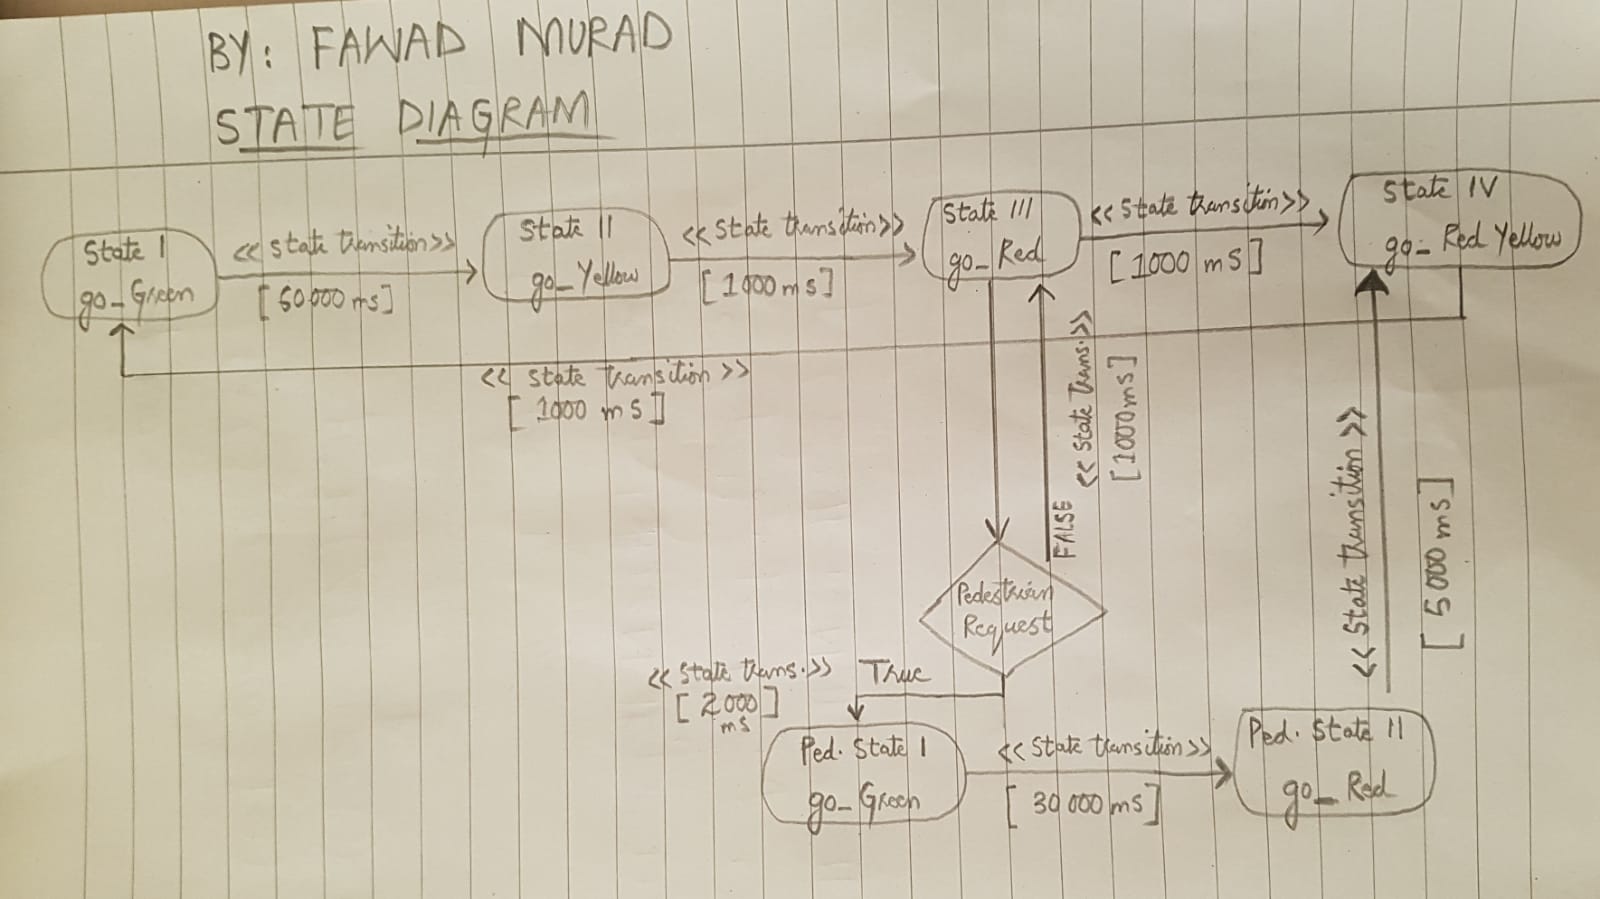 BY: FAWAD MURAD
STATE DIAGRAM
State I
go_Green
<< State transition>>
[ 60000 ms]
State II
go_Yellow
<< State transition>>
[1000 ms]
State III
go_Red
<< State transition>>
[ 1000 mS]
State IV
go_ Red Yellow
<< State transition >>
[ 1000 mS]
<< State Trans.>>
[1000 mS]
FALSE
<< State transition >>
[ 5000 ms]
Pedestrian
Request
<< State trans.>>
[ 2000]
ms
True
Ped. State I
go_Green
<< State transition>>
[ 30 000 ms]
Ped. State II
go_Red